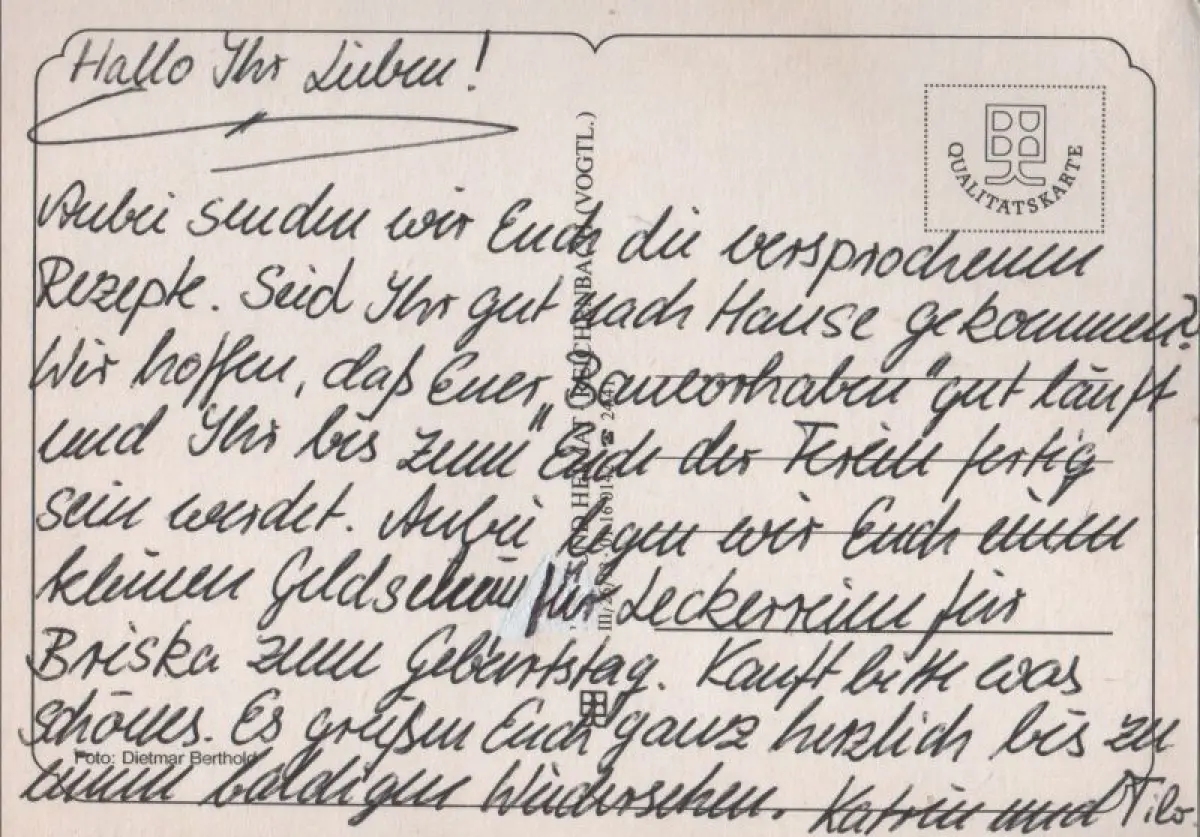 Hallo Ihr Lieben!
QUALITÄTSKARTE
Anbei senden wir Euch die versprochenen
Rezepte. Seid Ihr gut nach Hause gekommen?
Wir hoffen, daß Euer „Bauvorhaben" gut läuft
und Ihr bis zum Ende der Ferien fertig
sein werdet. Anbei legen wir Euch einen
kleinen Geldschein für Leckereien für
Briska zum Geburtstag. Kauft bitte was
schönes. Es grüßen Euch ganz herzlich bis zu
einem baldigen Wiedersehen. Katrin und Tilo
Foto: Dietmar Berthold
REICHENBACH (VOGTL.)